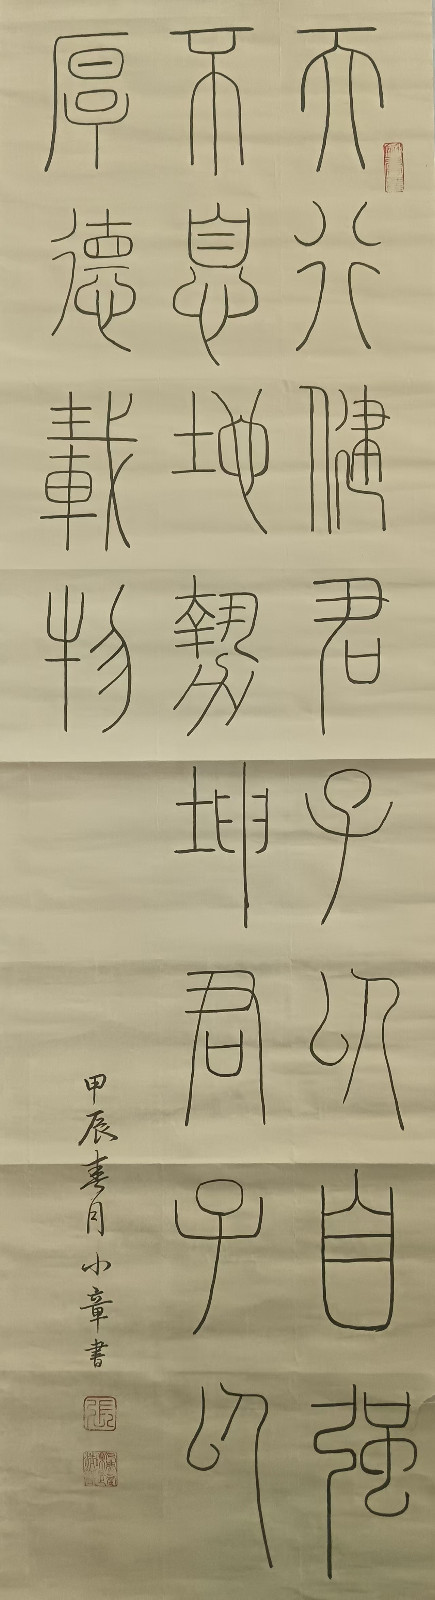 天行健君子以自强
不息地势坤君子以
厚德載物
甲辰春月小章書
張